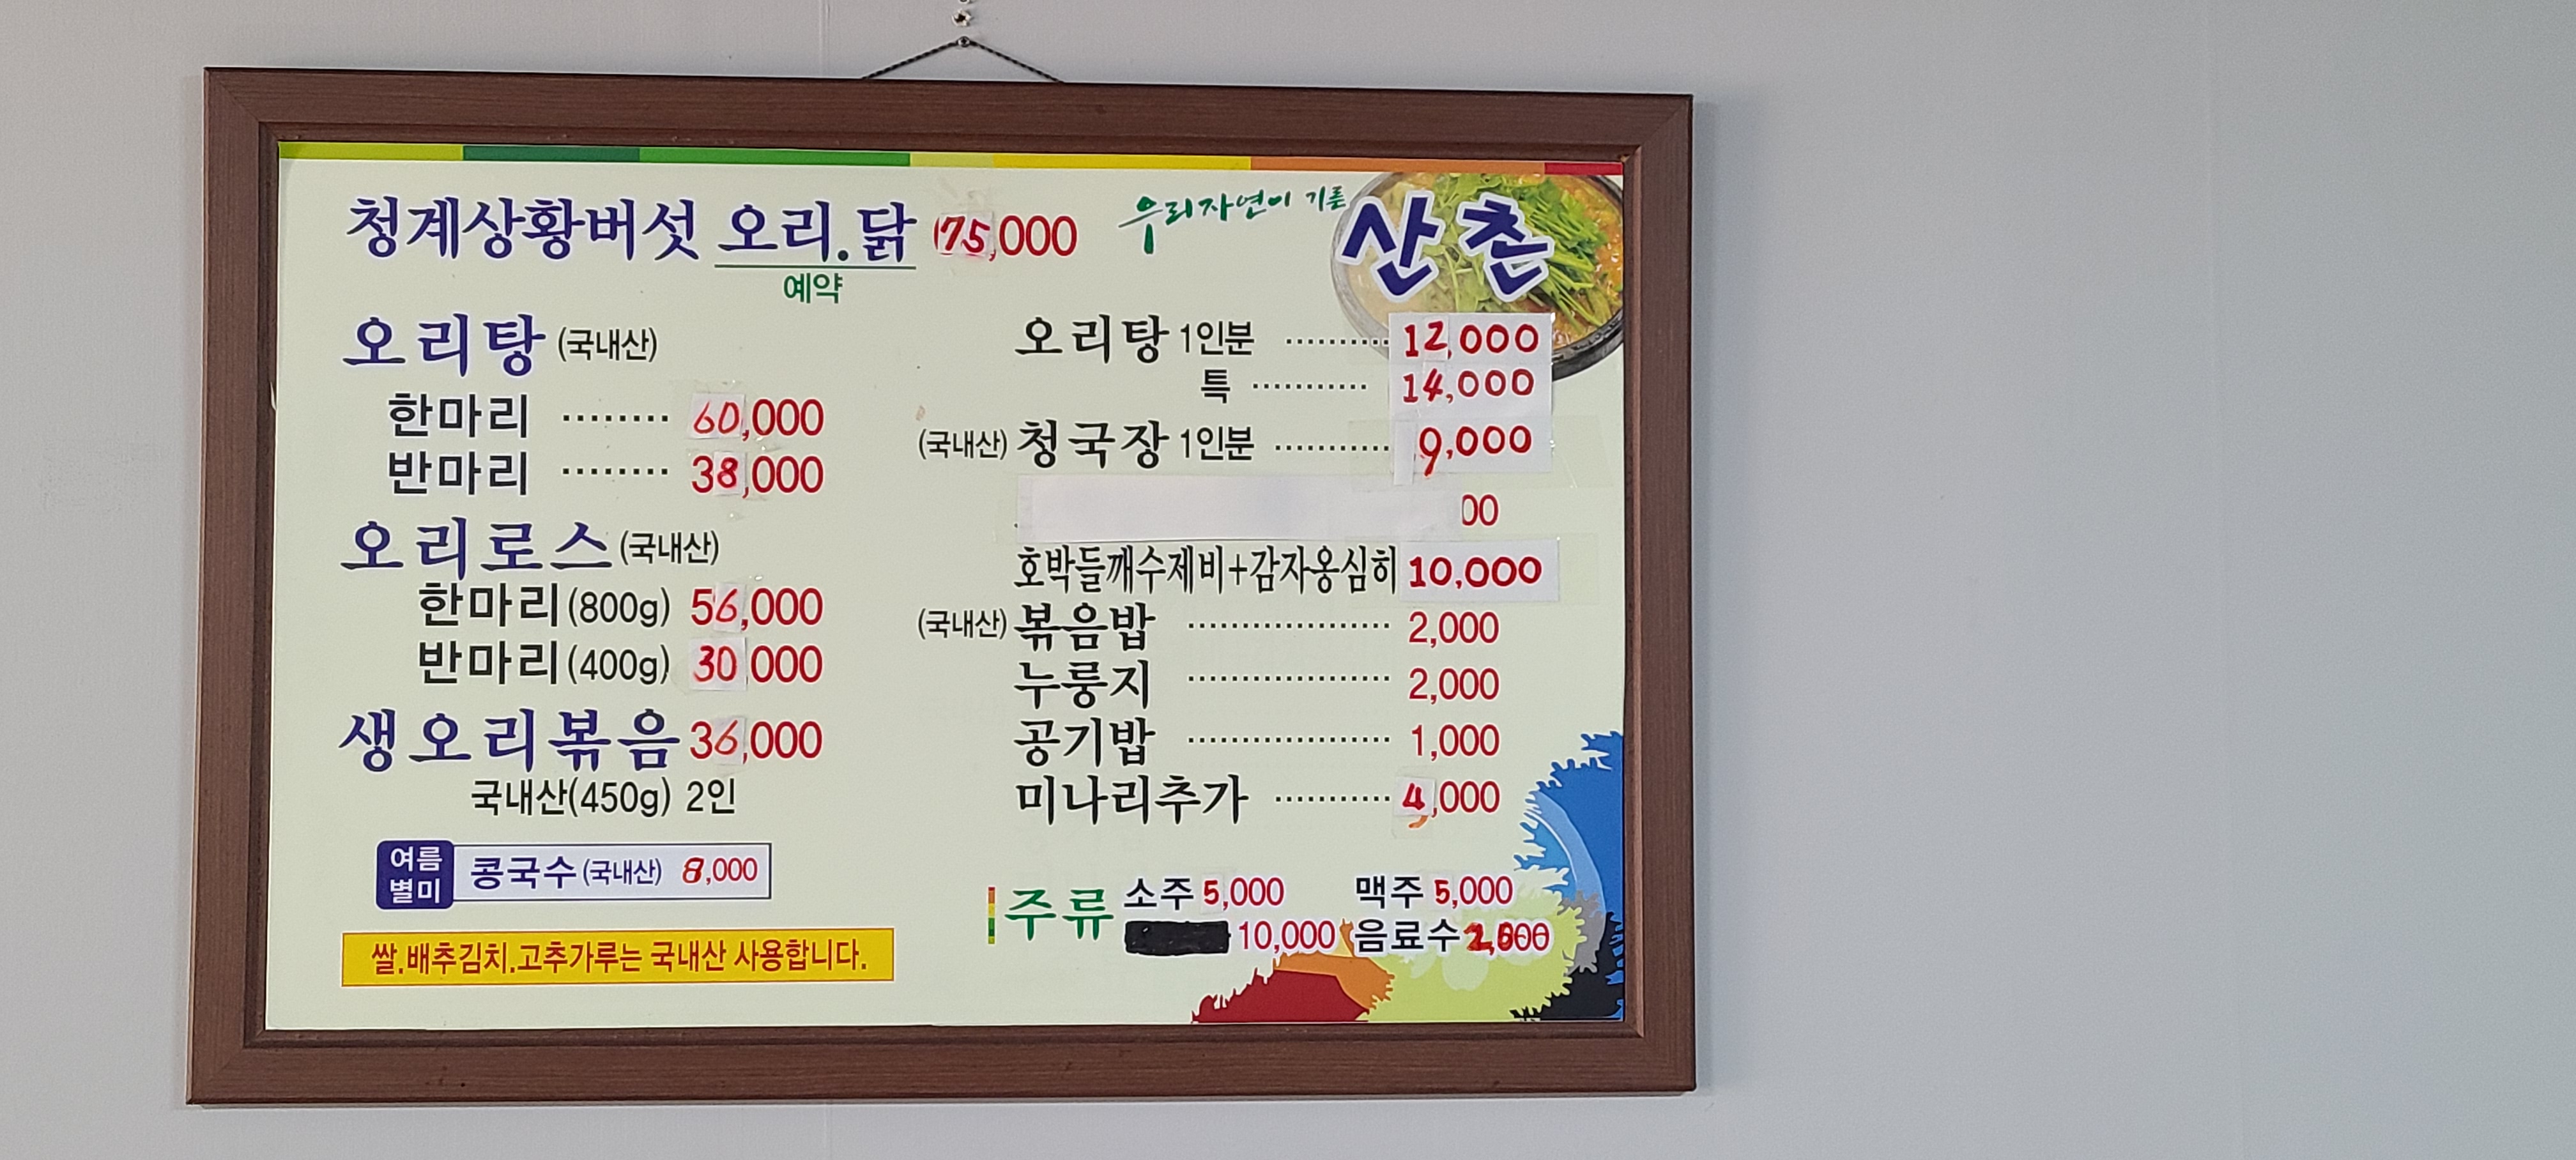 청계상황버섯 오리.닭 75,000
예약
우리자연이 기른
산촌
오리탕 (국내산)
한마리 ········ 60,000
반마리 ········ 38,000
오리로스 (국내산)
한마리 (800g) 56,000
반마리 (400g) 30,000
생오리볶음 36,000
국내산(450g) 2인
여름
별미
콩국수 (국내산) 8,000
쌀.배추김치.고추가루는 국내산 사용합니다.
오리탕 1인분 ·········· 12,000
특 ············ 14,000
(국내산) 청국장 1인분 ············ 9,000
00
호박들깨수제비+감자옹심히 10,000
(국내산) 볶음밥 ····················· 2,000
누룽지 ····················· 2,000
공기밥 ····················· 1,000
미나리추가 ············ 4,000
주류
소주 5,000 맥주 5,000
10,000 음료수